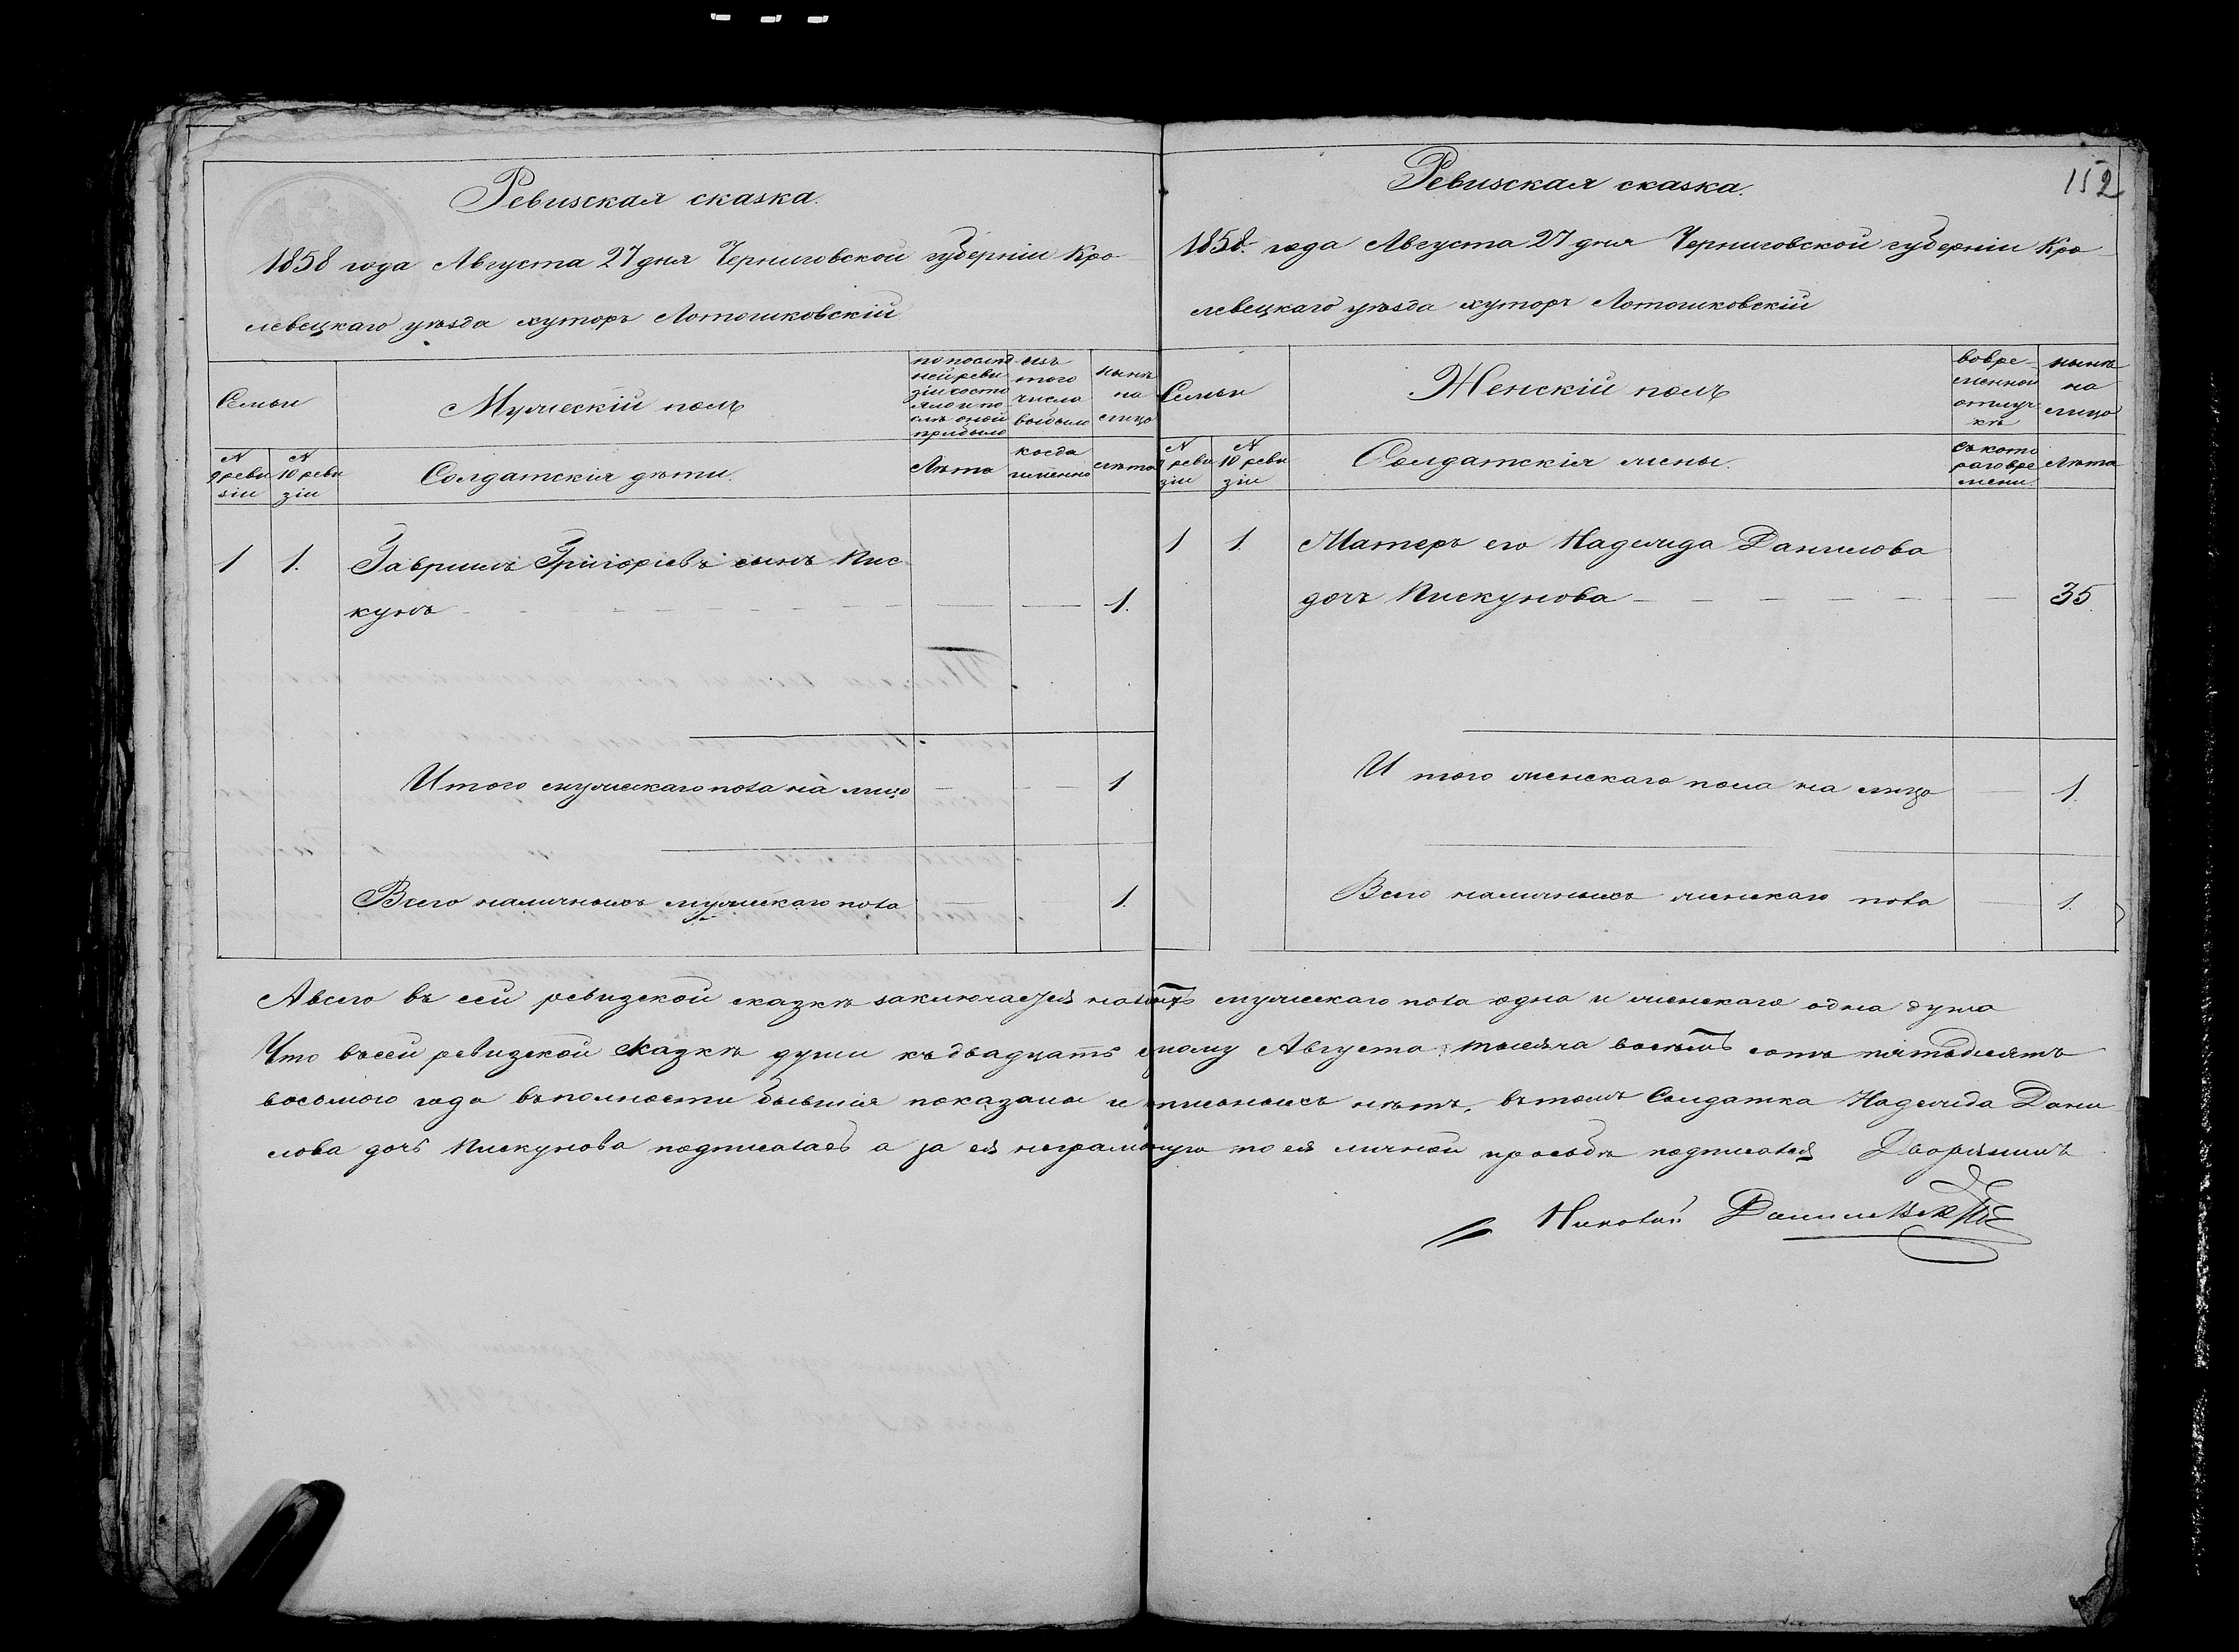 Ревизская сказка.
1858 года Августа 27 дня Черниговской губерніи Кро-
левецкаго уѣзда хуторъ Лотошковскій
Семьи
Мужескій полъ
по послѣд
ней реви
зіи состо
яло и по
слѣ оной
прибыло
изъ
того
числа
выбыло
нынѣ
на
лицо
N
9 реви
зіи
N
10 реви
зіи
Солдатскія дѣти.
Лѣта
когда
именно
лѣта
1 1. Гавріилъ Григоріевъ сынъ Пис
кунъ — — — 1.
Итого мужескаго пола на лицо — — 1
Всего наличныхъ мужескаго пола — 1.
152
Ревизская сказка.
1858. года Августа 27 дня Черниговской губерніи Кро-
левецкаго уѣзда хуторъ Лотошковскій
Семьи
Женскій полъ
вовре-
менной
отлуч
кѣ
нынѣ
на
лицо
N
9 реви
зіи
N
10 реви
зіи
Солдатскія жены.
съ кото
раго вре
мени.
Лѣта
1 1. Матеръ его Надежда Данилова
дочъ Пискунова — — — 35.
И того женскаго пола на лицо — 1.
Всего наличныхъ женскаго пола — 1.
А всего въ сей ревизской сказкѣ заключается мужескаго пола одна и женскаго одна душа
Что въ сей ревизской сказкѣ души къ двадцать Августа тысяча восемъ сотъ пятьдесятъ
восьмого года въ полности бывшія показаны и нѣтъ, въ томъ Солдатка Надежда Дани
лова дочь Пискунова подписалась а за ея неграмотную по ея личной прозьбѣ подписался Дворянинъ
Николай Данилевскій